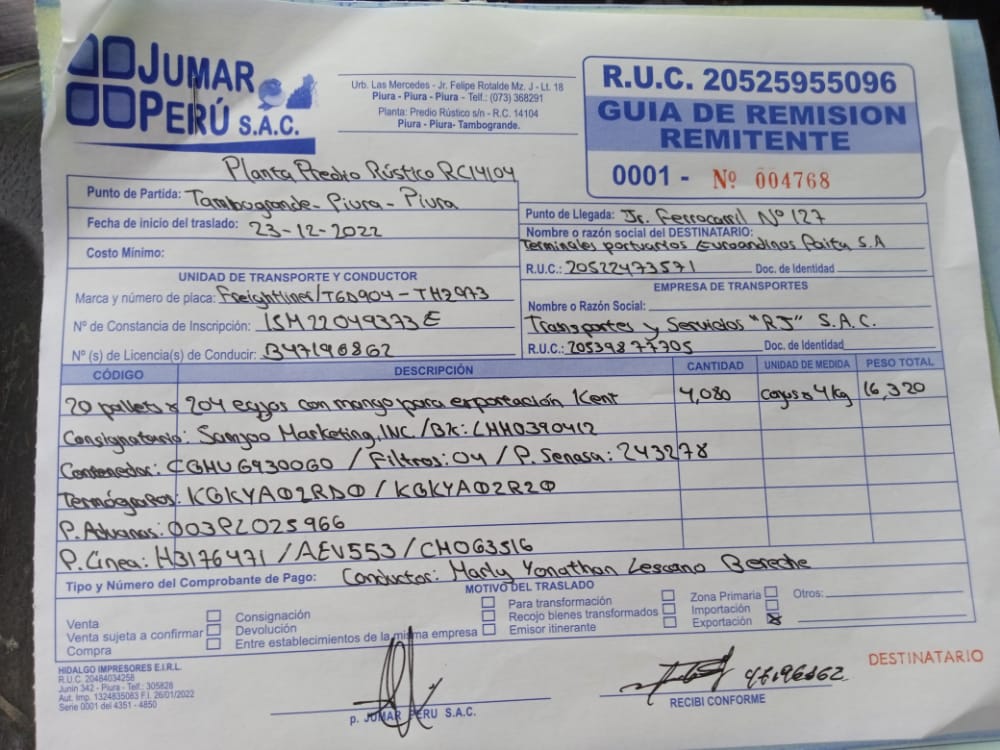 JUMAR
PERÚ S.A.C.
Urb. Las Mercedes - Jr. Felipe Rotalde Mz. J - Lt. 18
Piura - Piura - Piura - Telf.: (073) 368291
Planta: Predio Rústico s/n - R.C. 14104
Piura - Piura- Tambogrande.
R.U.C. 20525955096
GUIA DE REMISION
REMITENTE
0001 - Nº 004768
Planta Predio Rústico RC14104
Punto de Partida: Tambogrande - Piura - Piura
Fecha de inicio del traslado: 23-12-2022
Costo Mínimo:
Punto de Llegada: Jr. Ferrocarril Nº 127
Nombre o razón social del DESTINATARIO:
Terminales portuarios Euroandinos Paita S.A
R.U.C.: 20522473571 Doc. de Identidad
UNIDAD DE TRANSPORTE Y CONDUCTOR
Marca y número de placa: Freightliner/T6D904 - TH2973
Nº de Constancia de Inscripción: 15M22049373E
Nº (s) de Licencia(s) de Conducir: B47196862
EMPRESA DE TRANSPORTES
Nombre o Razón Social:
Transportes y Servicios "RJ" S.A.C.
R.U.C.: 20539877705 Doc. de Identidad
CÓDIGO DESCRIPCIÓN CANTIDAD UNIDAD DE MEDIDA PESO TOTAL
20 pallets x 204 cajas con mango para exportación Kent 4,080 cajas x 4kg 16,320
Consignatario: Samjoo Marketing, INC. /BK: LHH0390412
Contenedor: CGHU6930060 / Filtros: 04 / P. Senasa: 243278
Termógrafos: KGKYA02RD0 / KGKYA02R20
P. Aduanas: 003PL025966
P. Línea: H3176471 / AEV553 / CH063516
Tipo y Número del Comprobante de Pago: Conductor: Marly Yonathan Lescano Bereche
MOTIVO DEL TRASLADO
Venta
Venta sujeta a confirmar
Compra
Consignación
Devolución
Entre establecimientos de la misma empresa
Para transformación
Recojo bienes transformados
Emisor itinerante
Zona Primaria
Importación
Exportación X
Otros:
HIDALGO IMPRESORES E.I.R.L.
R.U.C. 20484034258
Junin 342 - Piura - Telf.: 305828
Aut. Imp. 1324835083 F.I. 26/01/2022
Serie 0001 del 4351 - 4850
p. JUMAR PERU S.A.C.
47196862
RECIBI CONFORME
DESTINATARIO